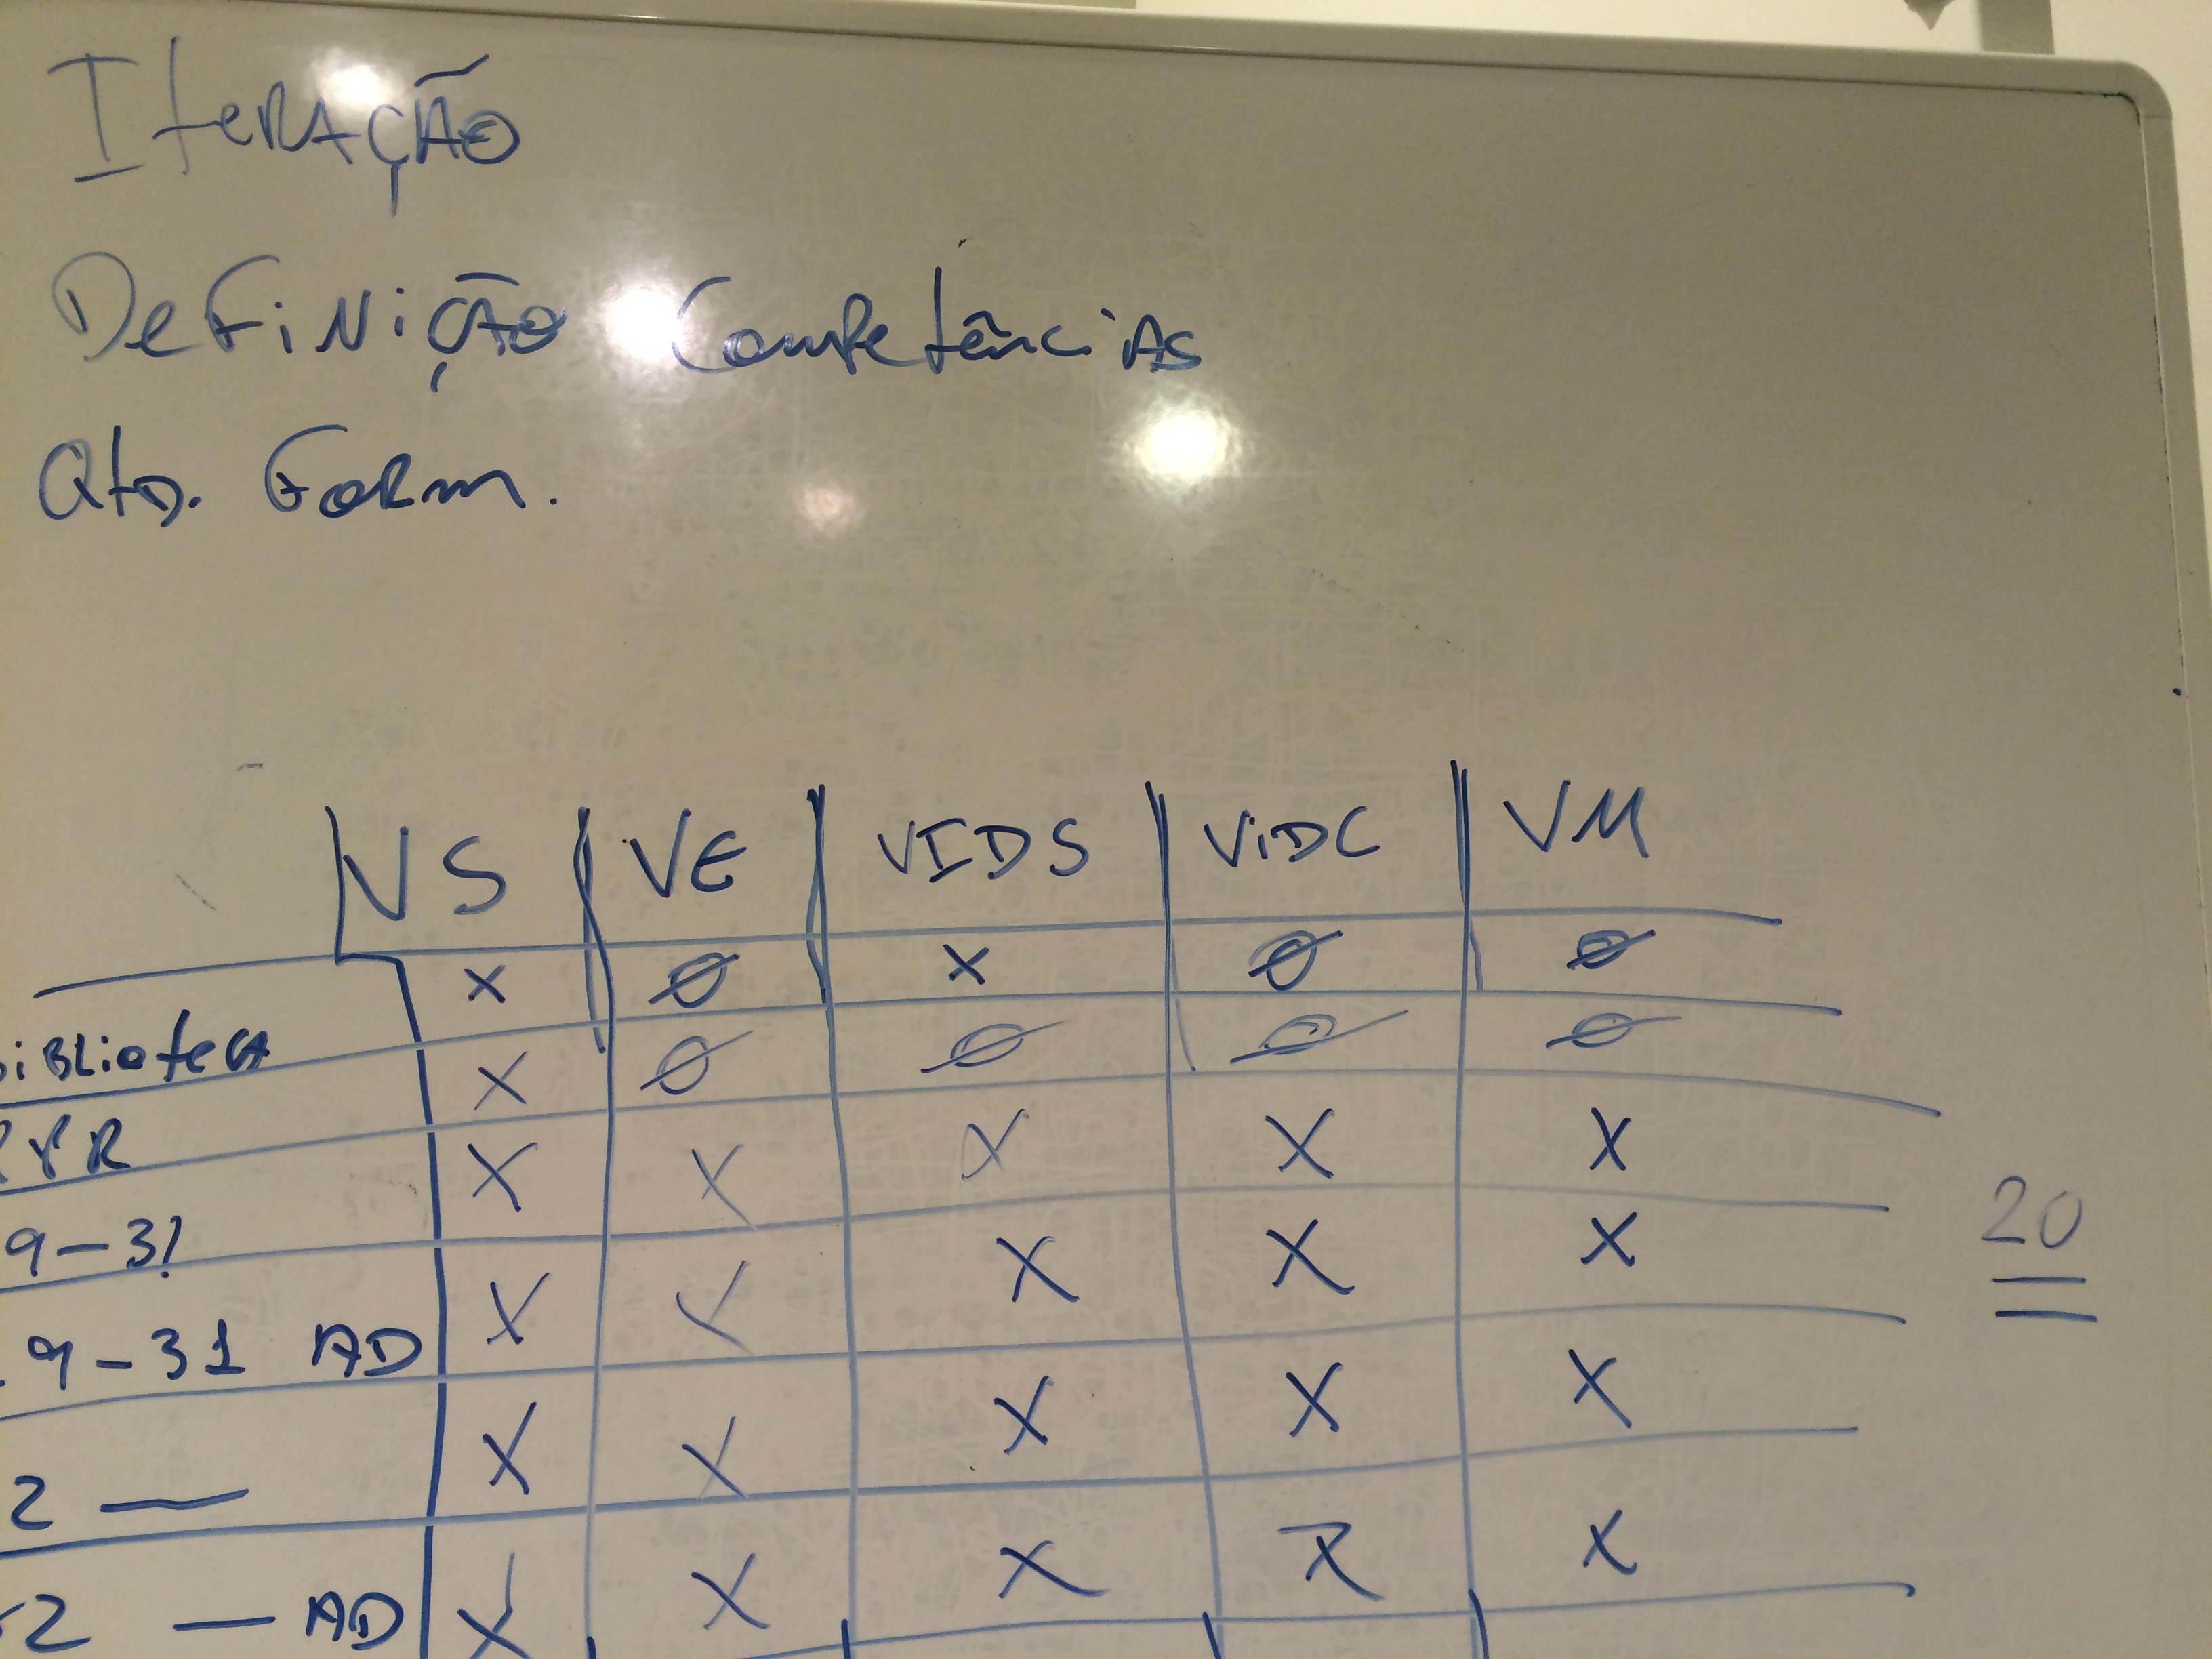 Iteração
Definição Competências
Qtd. Form.
VS VE VIDS ViDC VM
BiBLioteca X Ø X Ø Ø
X Ø Ø Ø Ø
9-31 X X X X X
9-31 AD X X X X X
20
2 — X X X X X
2 — AD X X X X X